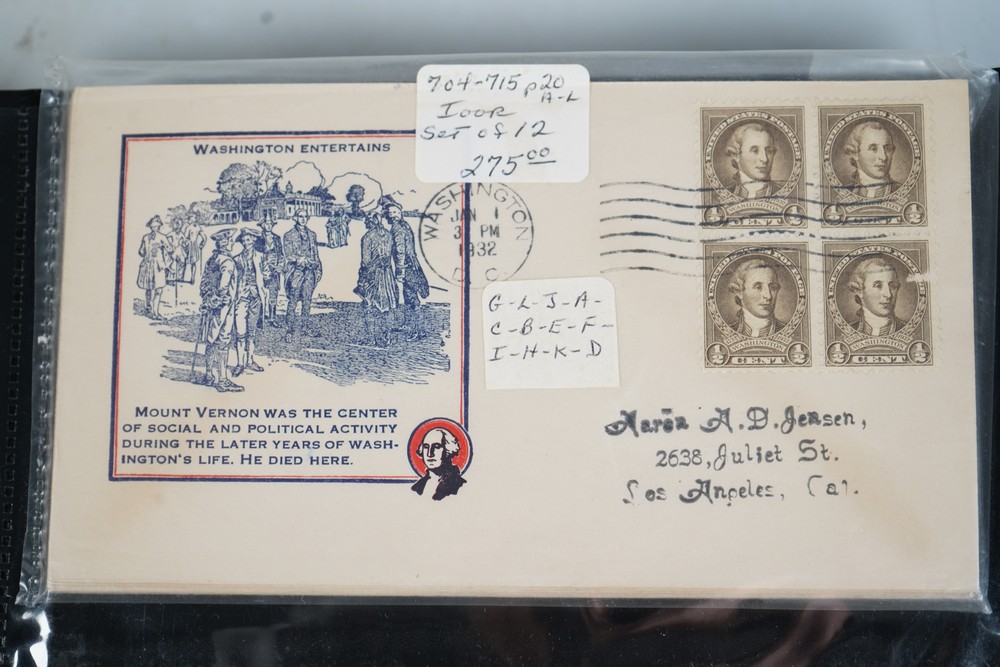 704-715 p20
A-L
Ioor
Set of 12
275.00
WASHINGTON ENTERTAINS
WASHINGTON
JAN 1
3 PM
1932
D. C.
G-L-J-A-
C-B-E-F-
I-H-K-D
MOUNT VERNON WAS THE CENTER
OF SOCIAL AND POLITICAL ACTIVITY
DURING THE LATER YEARS OF WASH-
INGTON'S LIFE. HE DIED HERE.
UNITED STATES POSTAGE
WASHINGTON
½ CENT ½
UNITED STATES POSTAGE
WASHINGTON
½ CENT ½
UNITED STATES POSTAGE
WASHINGTON
½ CENT ½
UNITED STATES POSTAGE
WASHINGTON
½ CENT ½
Aaron A.D. Jensen,
2638, Juliet St.
Los Angeles, Cal.